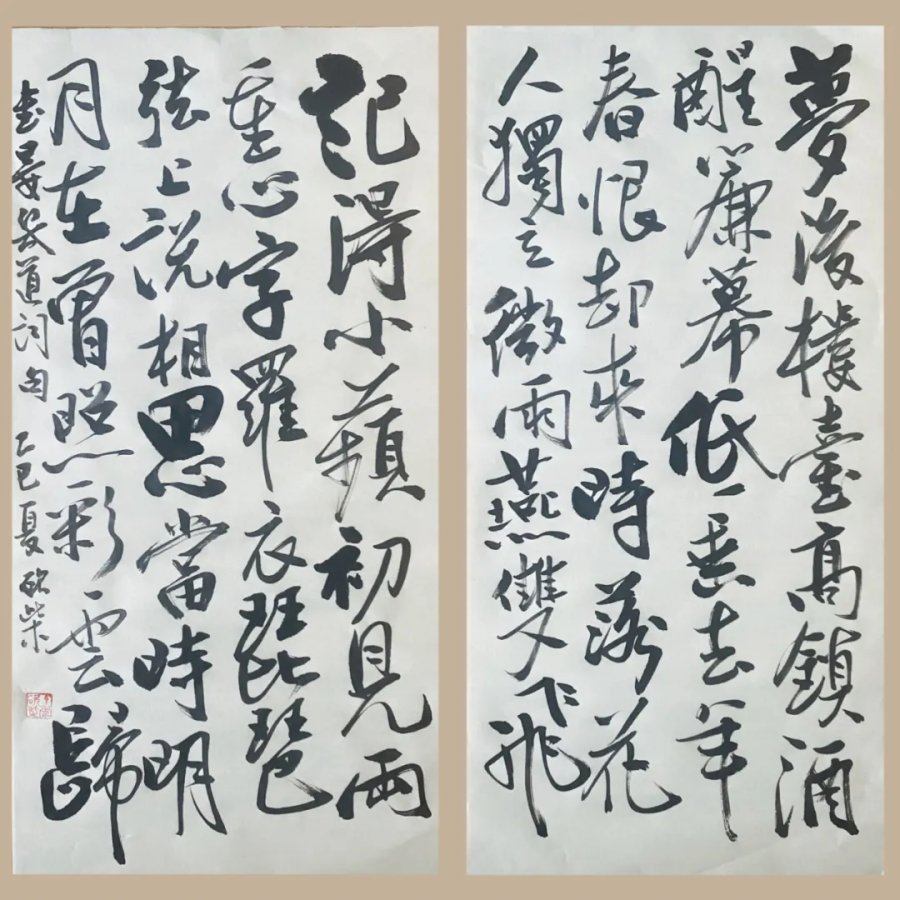 夢後樓臺高鎖酒
醒簾幕低垂去年
春恨却來時落花
人獨立微雨燕雙飛
記得小蘋初見兩
重心字羅衣琵琶
弦上説相思當時明
月在曾照彩雲歸
書晏幾道詞句 乙巳夏 砍柴